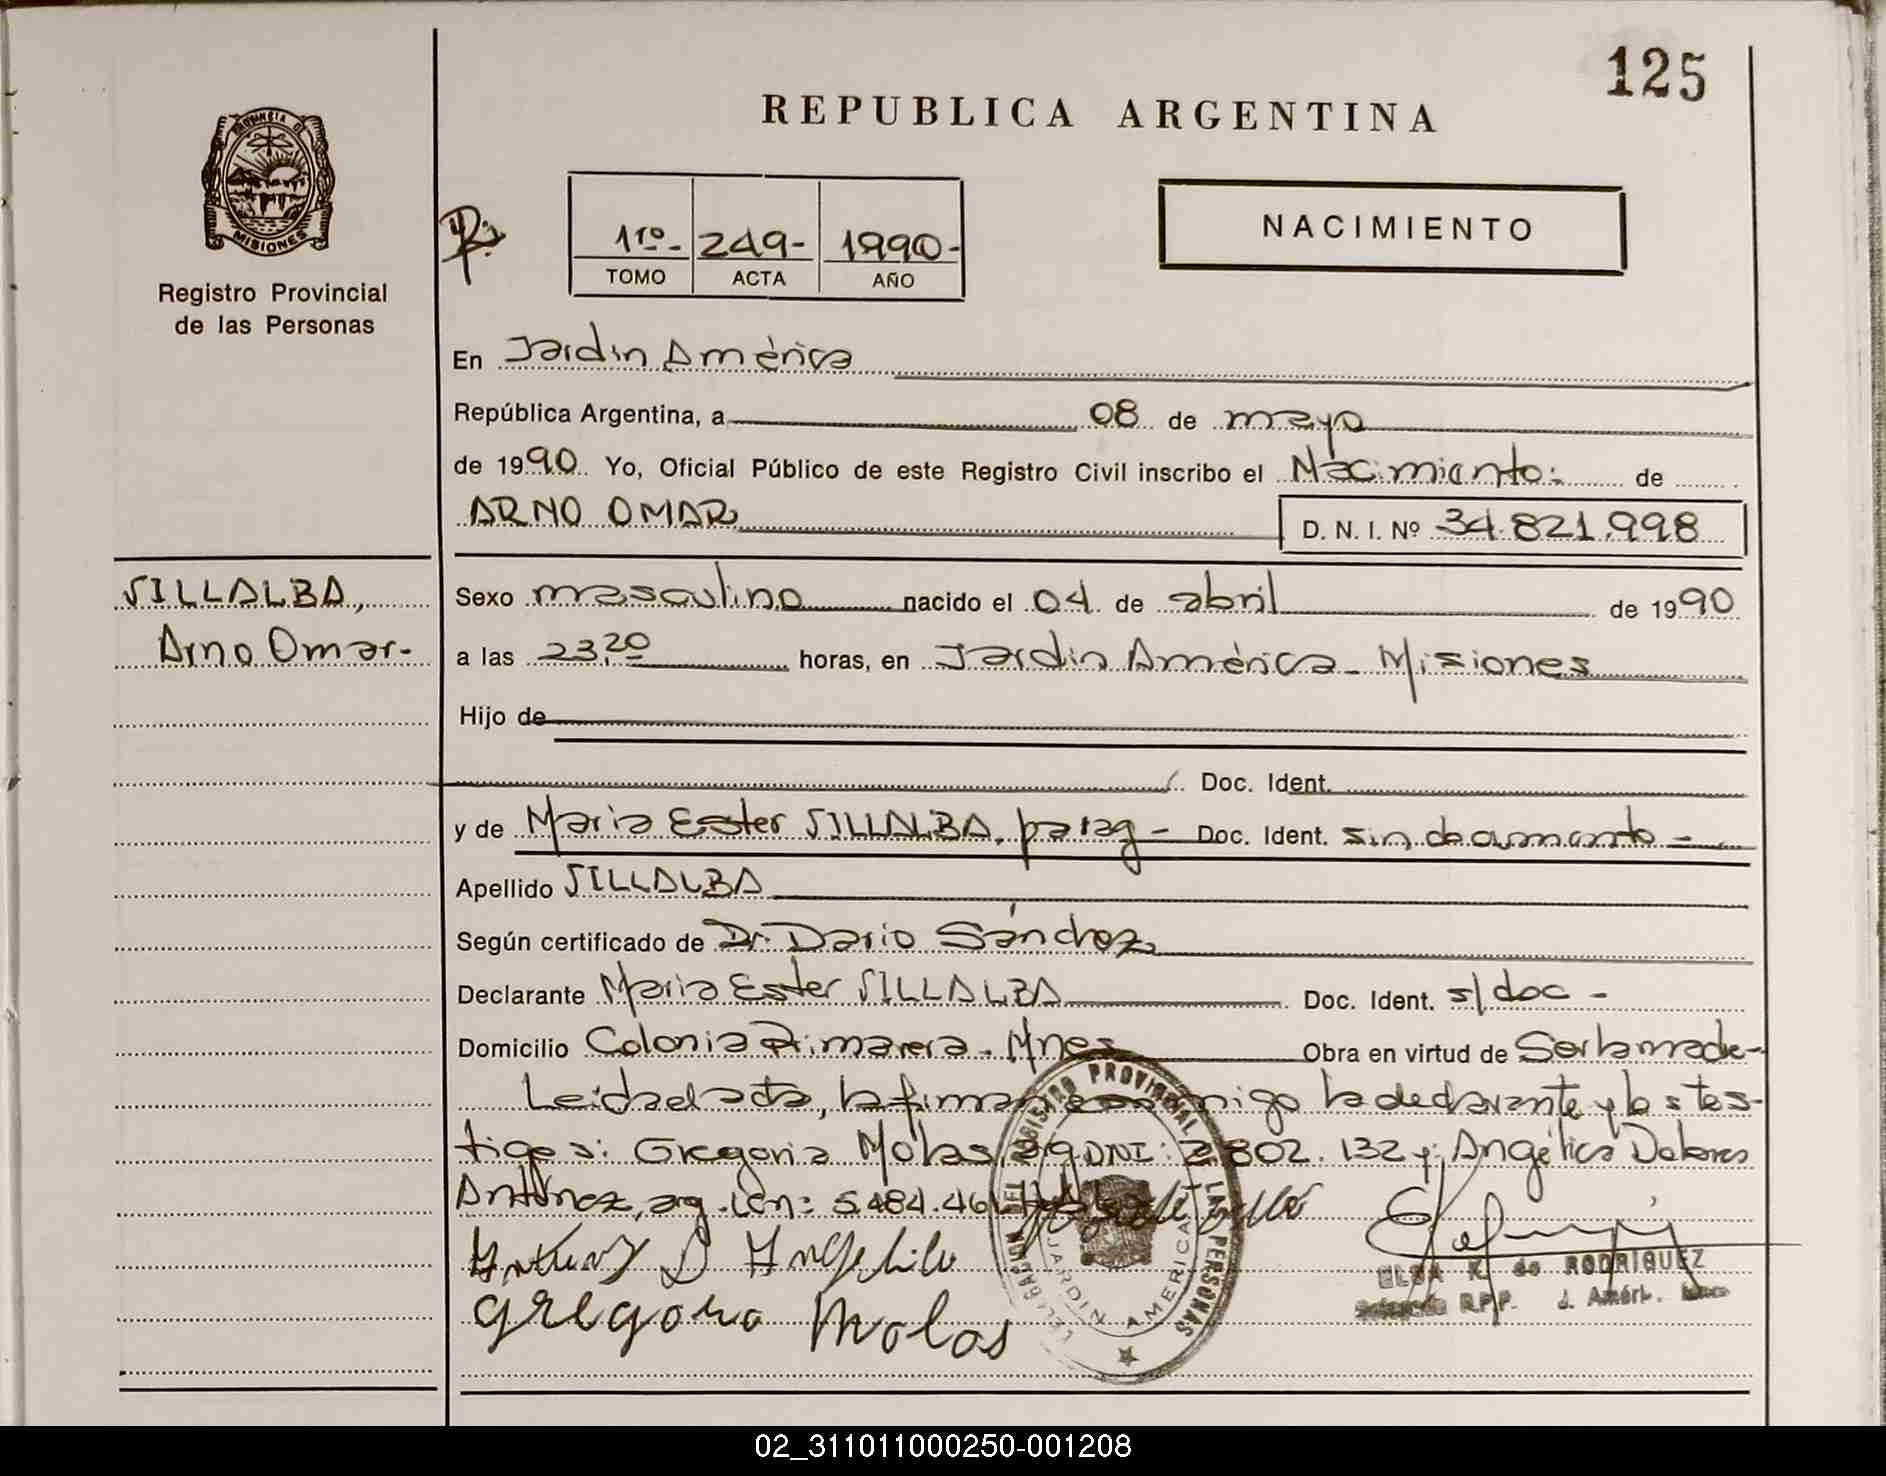 125
REPUBLICA ARGENTINA
PROVINCIA DE
MISIONES
Registro Provincial
de las Personas
1ro.- 249- 1990-
TOMO ACTA AÑO
NACIMIENTO
En Jardin América
República Argentina, a 08 de mayo
de 1990. Yo, Oficial Público de este Registro Civil inscribo el Nacimiento: de
ARNO OMAR D. N. I. Nº 34.821.998
VILLALBA,
Arno Omar.-
Sexo masculino nacido el 04 de abril de 1990
a las 23,20 horas, en Jardin América - Misiones
Hijo de
Doc. Ident.
y de Maria Ester VILLALBA, parag - Doc. Ident. sin documento -
Apellido VILLALBA
Según certificado de Dr. Dario Sánchez
Declarante Maria Ester VILLALBA Doc. Ident. s/doc -
Domicilio Colonia Primavera - Mnes Obra en virtud de Ser la madre-
Leida el acta, la firman conmigo la declarante y los tes-
tigos: Gregoria Molas, arg DNI: 2.802.132 y: Angélica Dolores
Antúnez, arg. Lcn: 5.484.46
Antunez D Angelica
gregoria molas
REGISTRO PROVINCIAL DE LAS PERSONAS
DELEGACION
JARDIN AMERICA
ELSA K. de RODRIGUEZ
R.P.P. J. Amér.
02_311011000250-001208